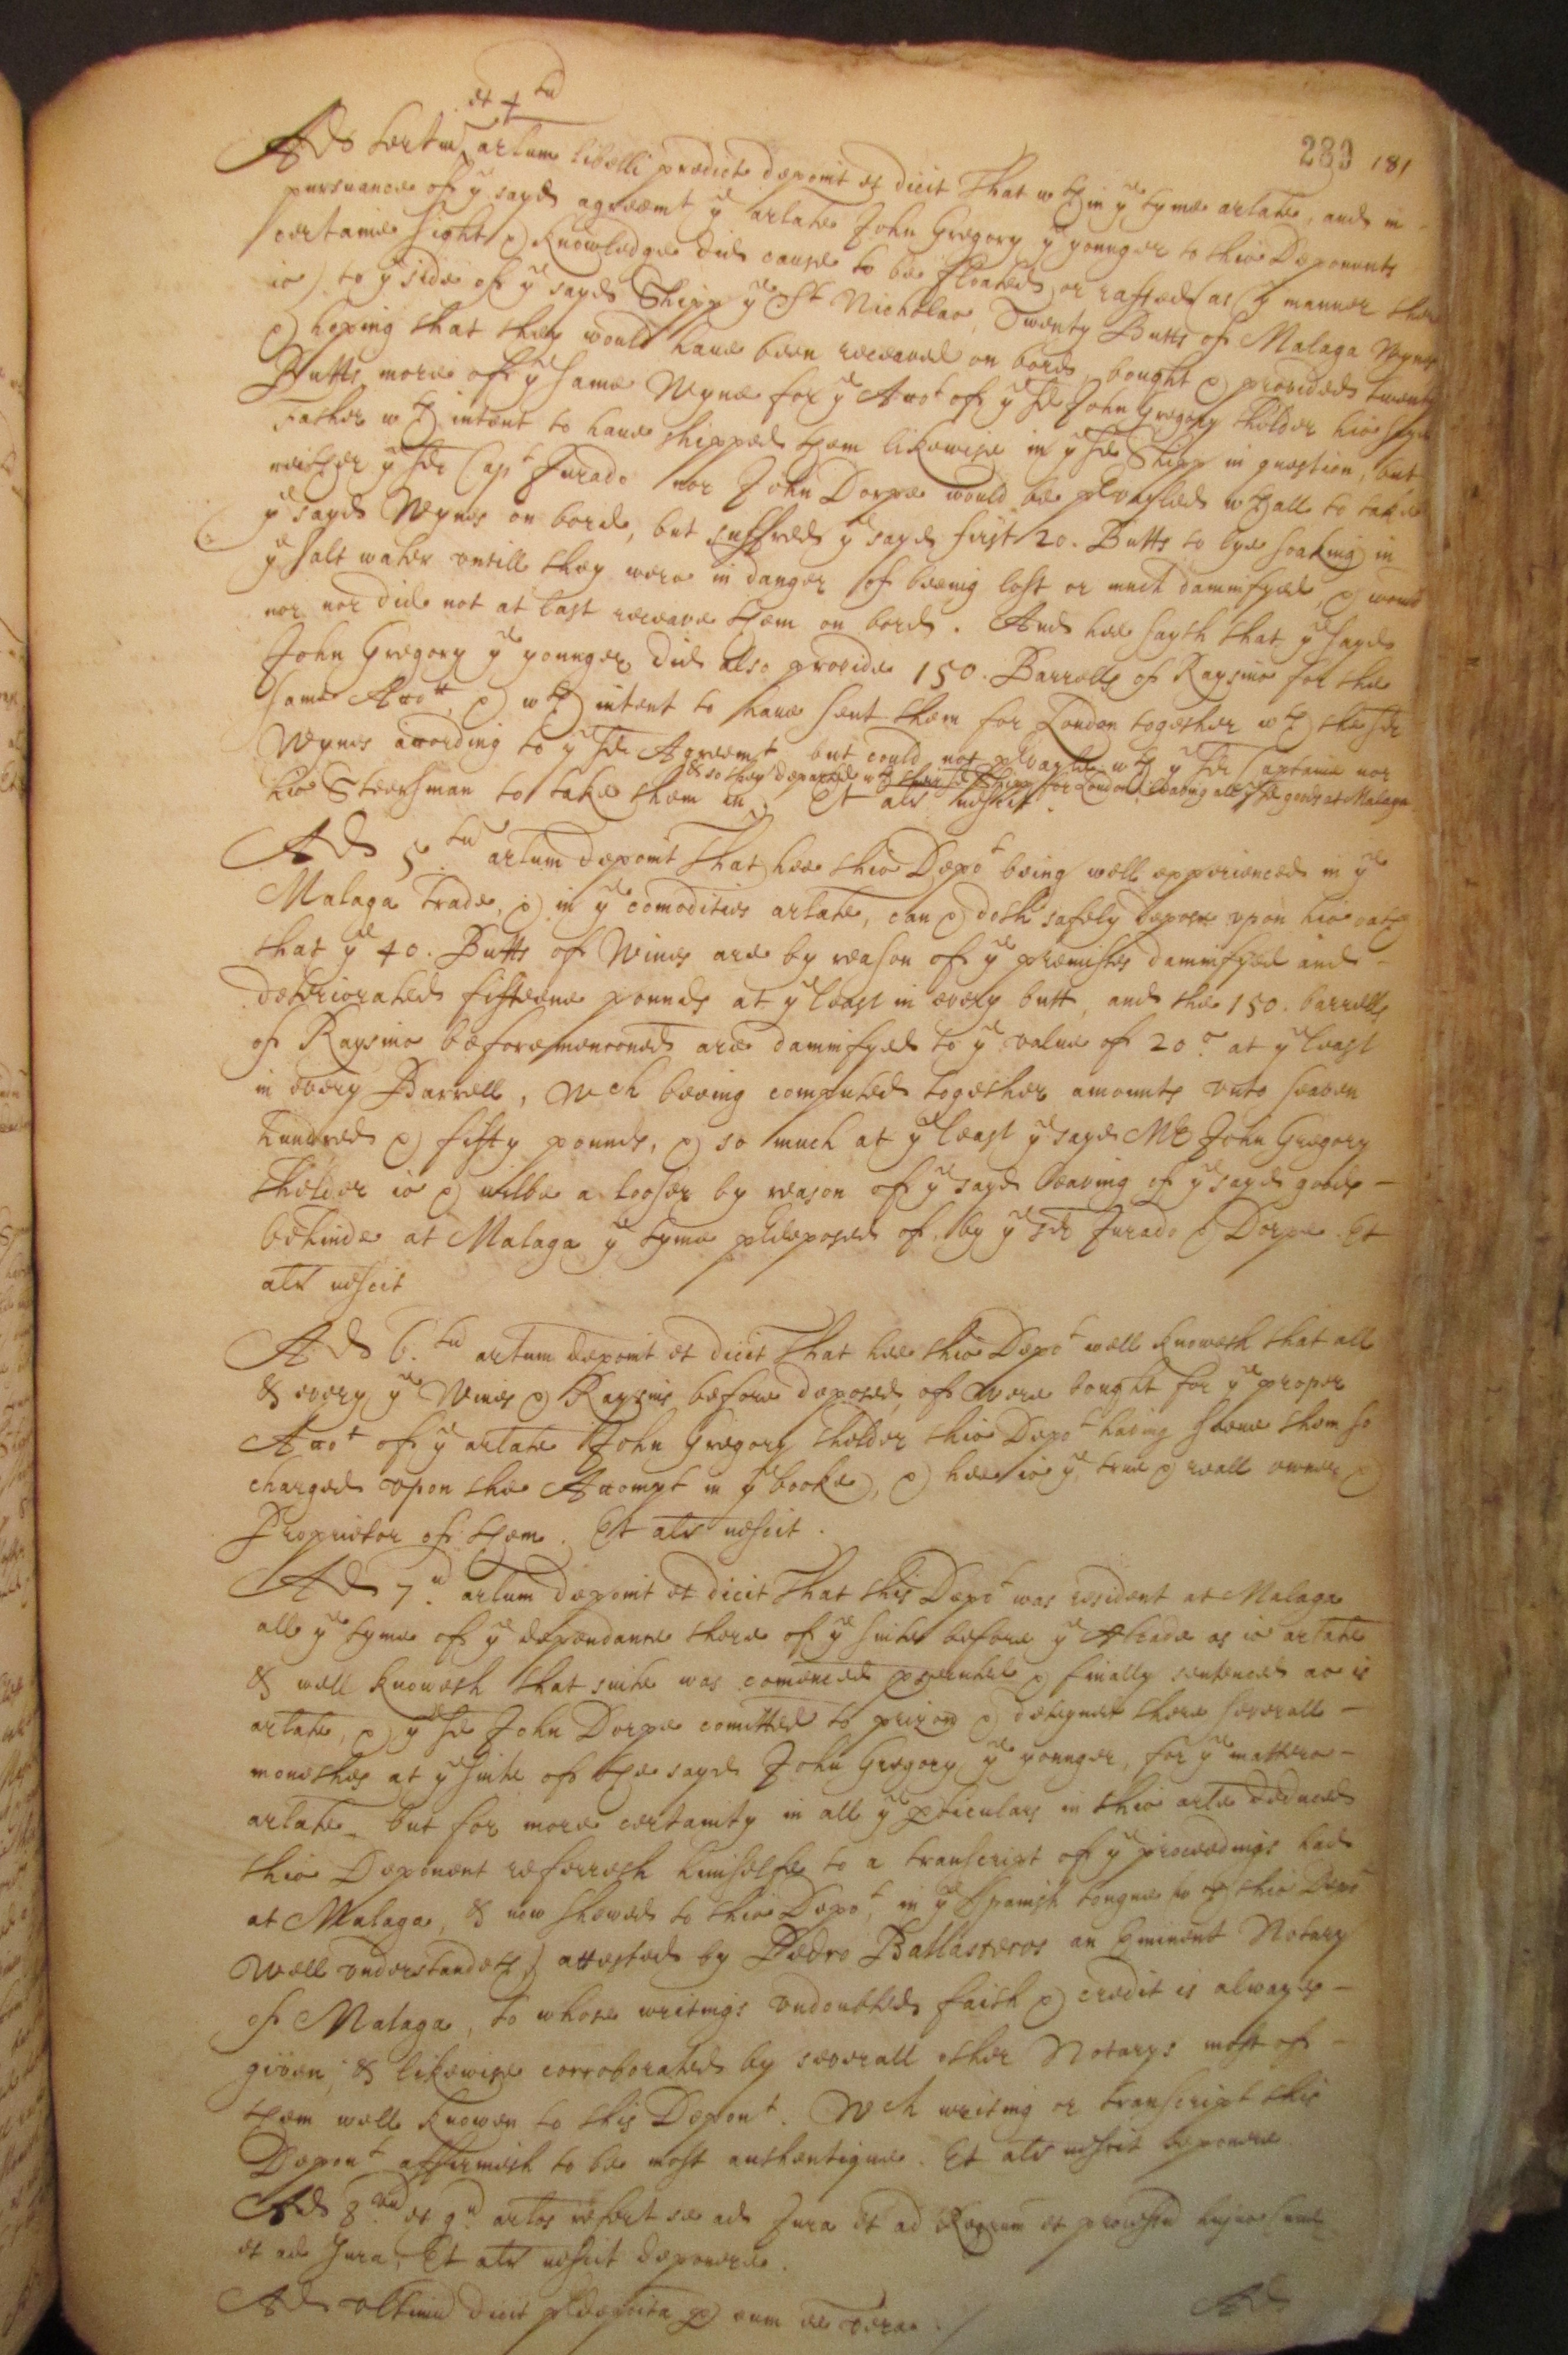 289 181
et 4tu
Ad tertiu artum libelli predict deponit et dicit That wthin ye tyme artate, and in
pursuance of ye sayd agreemt ye artate John Gregory ye younger to this Deponents
certaine sight & knowledge did cause to be floated or rafted (as ye manner there
is) to ye side of ye sayd Shipp ye St Nicholas, Twenty Butts of Malaga Wynes
& hoping that they would haue been receaued on bord, bought & prouided twenty
Butts more of ye same Wyne for ye Accot of ye sd John Gregory thelder his sayd
Father wth intent to haue shipped them likewise in ye sd Shipp in question, but
neither ye sd Capt Jurado nor John Dorpe would be prvayled wthall to take
ye sayd Wynes on bord, but suffred ye sayd first 20. Butts to lye soaking in
ye salt water vntill they were in danger of beeing lost or much damnifyed, & would
nor nor did not at last receaue them on bord. And hee sayth that ye sayd
John Gregory ye younger did also prouide 150. Barrells of Raysins for the
same Accott, & wth intent to haue sent them for London together wth the sd
Wynes according to ye sd Agreemt but could not prvayle wth ye sd Captaine nor
& so they departed wth their sd Shipp for London leauing all ye sd goods at Malaga
his Steersman to take them in. Et alr nescit.
Ad 5.tu artum deponit That hee this Depot being well experienced in ye
Malaga trade, & in ye comodities artate, can & doth safely depose vpon his oath
that ye 40. Butts of Wines are by reason of ye premisses damnifyed and -
deteriorated fifteene pounds at ye least in every butt, and the 150. barrells
of Raysins beforemenconed are damnifyed to ye value of 20.s at ye least
in every Barrell, Wch beeing computed together amounts vnto seaven
hundred & fifty pounds, & so much at ye least ye sayd Mr John Gregory
thelder is & wilbe a looser by reason of ye sayd leaving of ye sayd goods -
behinde at Malaga ye tyme prdeposed of by ye sd Jurado & Dorpe. Et
alr nescit
Ad 6.tu artum deponit et dicit That hee this Depot well knoweth that all
& every ye Wines & Raysins before deposed of were bought for ye proper
Accot of ye artate John Gregory thelder this Depot having seene them so
charged vpon the Accompt in ye booke), & hee is ye true & reall owner &
Proprietor of them. Et alr nescit.
Ad 7.u artum deponit et dicit That this Depot was resident at Malaga
all ye tyme of ye dependance there of ye suite before ye Alcade as is artate
& well knoweth that suite was comenced prsecuted & finally sentenced as is
artate, & ye sd John Dorpe comitted to prizon & deteyned there severall -
monethes at ye suite of the sayd John Gregory ye younger, for ye matters -
artate. but for more certainty in all ye pticulars in this arte deduced
this Deponent referreth himselfe to a transcript of ye proceedings had
at Malaga, & now shewed to this Depot, in ye Spanish tongue (wch this Depot
well vnderstandeth) attested by Pedro Ballasteros an Eminent Notary
of Malaga, to whose writings vndoubted faith & credit is alwayes -
given; & likewise corroborated by severall other Notarys most of -
them well knowen to this Depont. Wch writing or transcript this
Depont affirmeth to be most authentique. Et alr nescit deponere.
Ad 8.vu et 9.u artos refert se ad Jura et ad Regrum et processu hujus Curie
et ad Jura, Et alr nescit deponere.
Ad vltimu dicit prdeposita p eum ee vera.
Ad